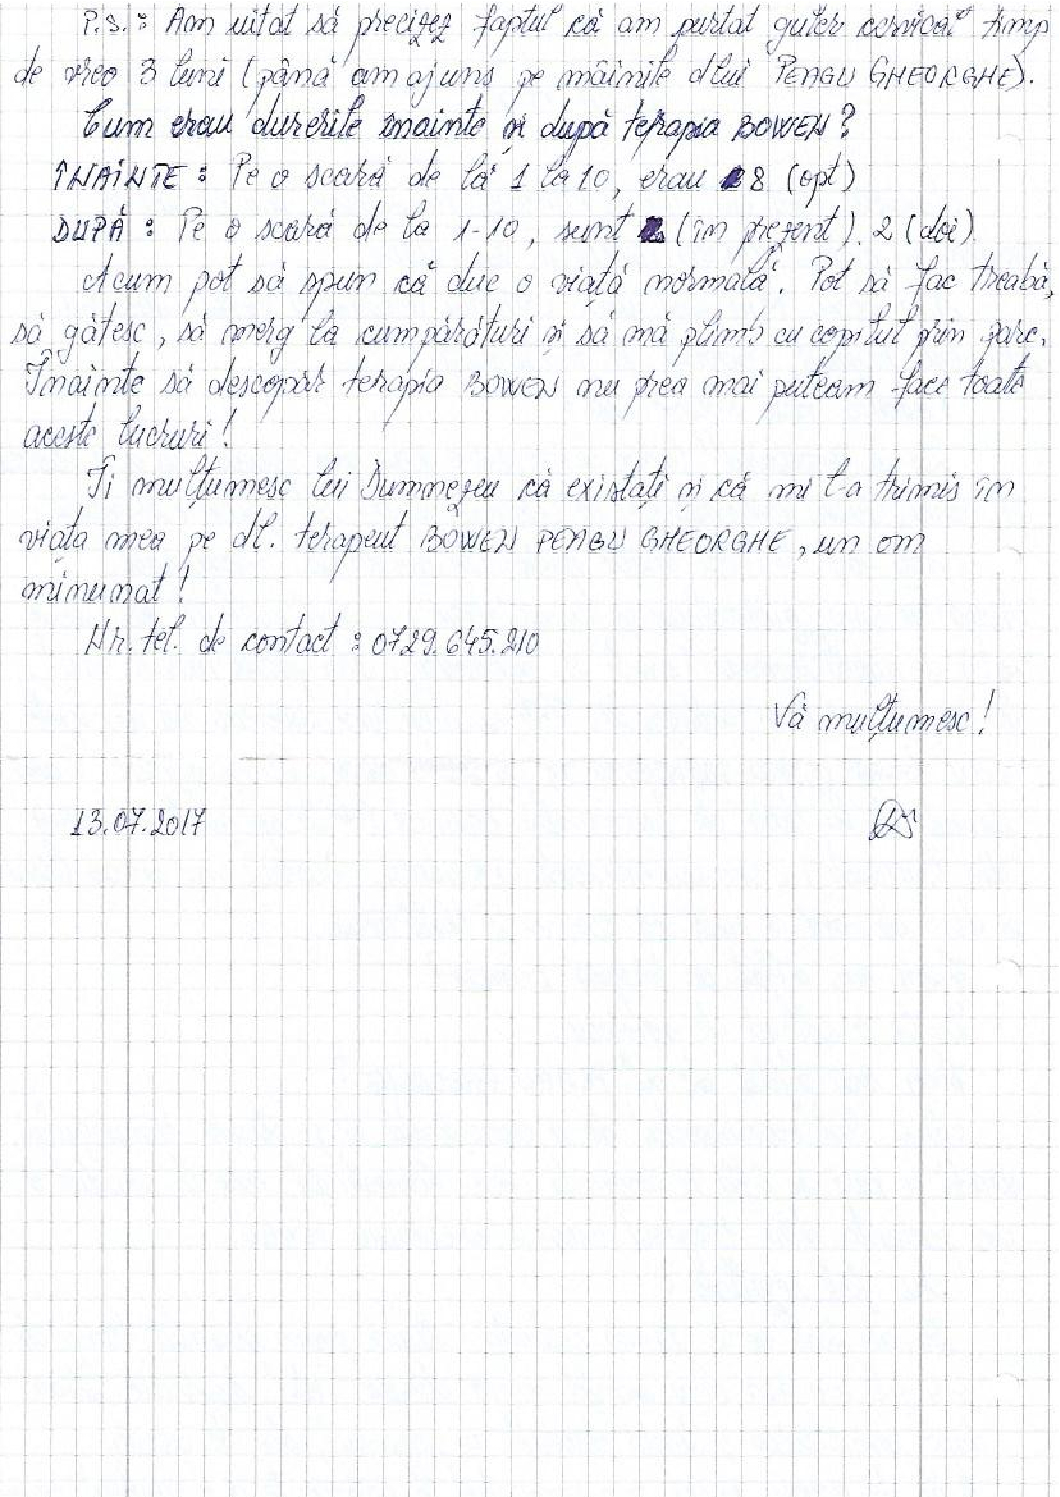 P.S.: Am uitat să precizez faptul că am purtat guler cervical timp
de vreo 3 luni (până am ajuns pe mâinile dlui PENGU GHEORGHE).
Cum erau durerile înainte și după terapia BOWEN?
ÎNAINTE: Pe o scară de la 1 la 10, erau 8 (opt)
DUPĂ: Pe o scară de la 1-10, sunt (în prezent). 2 (doi)
Acum pot să spun că duc o viață normală. Pot să fac treabă,
să gătesc, să merg la cumpărături și să mă plimb cu copilul prin parc.
Înainte să descopăr terapia BOWEN nu prea mai puteam face toate
aceste lucruri!
Îi mulțumesc lui Dumnezeu că existați și că mi l-a trimis în
viața mea pe dl. terapeut BOWEN PENGU GHEORGHE, un om
minunat!
Nr. tel. de contact: 0729.645.210
Vă mulțumesc!
13.07.2017